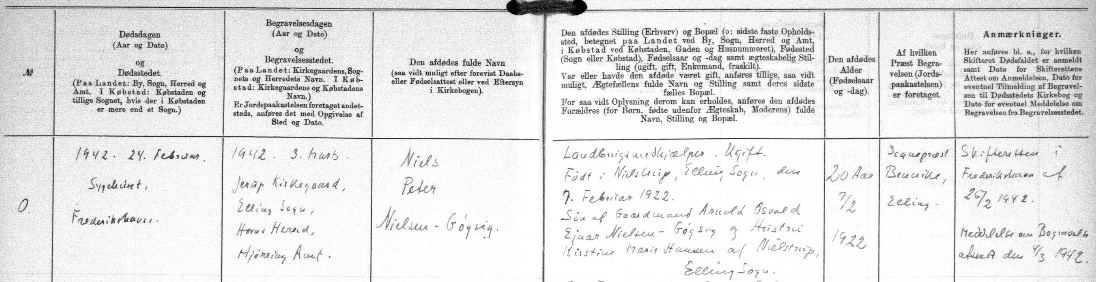 №
Dødsdagen
(Aar og Dato)
og
Dødsstedet.
(Paa Landet: By, Sogn, Herred og
Amt. I Købstad: Købstaden og
tillige Sognet, hvis der i Købstaden
er mere end et Sogn.)
Begravelsesdagen
(Aar og Dato)
og
Begravelsesstedet.
(Paa Landet: Kirkegaardens, Sog-
nets og Herredets Navn. I Køb-
stad: Kirkegaardens og Købstadens
Navn.)
Er Jordspaakastelsen foretaget andet-
steds, anføres det med Opgivelse af
Sted og Dato.
Den afdødes fulde Navn
(saa vidt muligt efter forevist Daabs-
eller Fødselsattest eller ved Eftersyn
i Kirkebogen).
Den afdødes Stilling (Erhverv) og Bopæl (ɔ: sidste faste Opholds-
sted, betegnet paa Landet ved By, Sogn, Herred og Amt,
i Købstad ved Købstaden, Gaden og Husnummeret), Fødested
(Sogn eller Købstad), Fødselsaar og -dag samt ægteskabelig Stil-
ling (ugift, gift, Enkemand, fraskilt).
Var eller havde den afdøde været gift, anføres tillige, saa vidt
muligt, Ægtefællens fulde Navn og Stilling samt deres sidste
fælles Bopæl.
For saa vidt Oplysning derom kan erholdes, anføres den afdødes
Forældres (for Børn, fødte udenfor Ægteskab, Moderens) fulde
Navn, Stilling og Bopæl.
Den afdødes
Alder
(Fødselsaar
og -dag).
Af hvilken
Præst Begra-
velsen (Jords-
paakastelsen)
er foretaget.
Anmærkninger.
Her anføres bl. a., for hvilken
Skifteret Dødsfaldet er anmeldt
samt Dato for Skifterettens
Attest om Anmeldelsen, Dato for
eventuel Tilmelding af Begravel-
sen til Dødsstedets Kirkebog og
Dato for eventuel Meddelelse om
Begravelsen fra Begravelsesstedet.
0.
1942. 24. Februar.
Sygehuset,
Frederikshavn.
1942. 3. Marts.
Jerup Kirkegaard,
Elling Sogn,
Horns Herred,
Hjørring Amt.
Niels
Peter
Nielsen-Gøgsig.
Landbrugsmedhjælper. Ugift.
Født i Nielstrup, Elling Sogn, den
7. Februar 1922.
Søn af Gaardmand Arnold Osvald
Ejnar Nielsen-Gøgsig og Hustru
Kirstine Marie Hansen af Nielstrup,
Elling Sogn.
20 Aar
7/2
1922
Sognepræst
Elling.
Skifteretten i
Frederikshavn af
26/2 1942.
Meddelelse om Begravelse
afsendt den 4/3 1942.